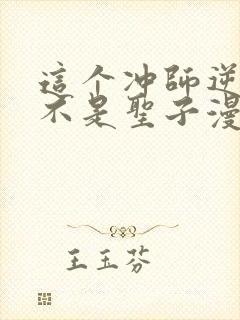 這个冲師逆
不是聖子漫
王玉芬